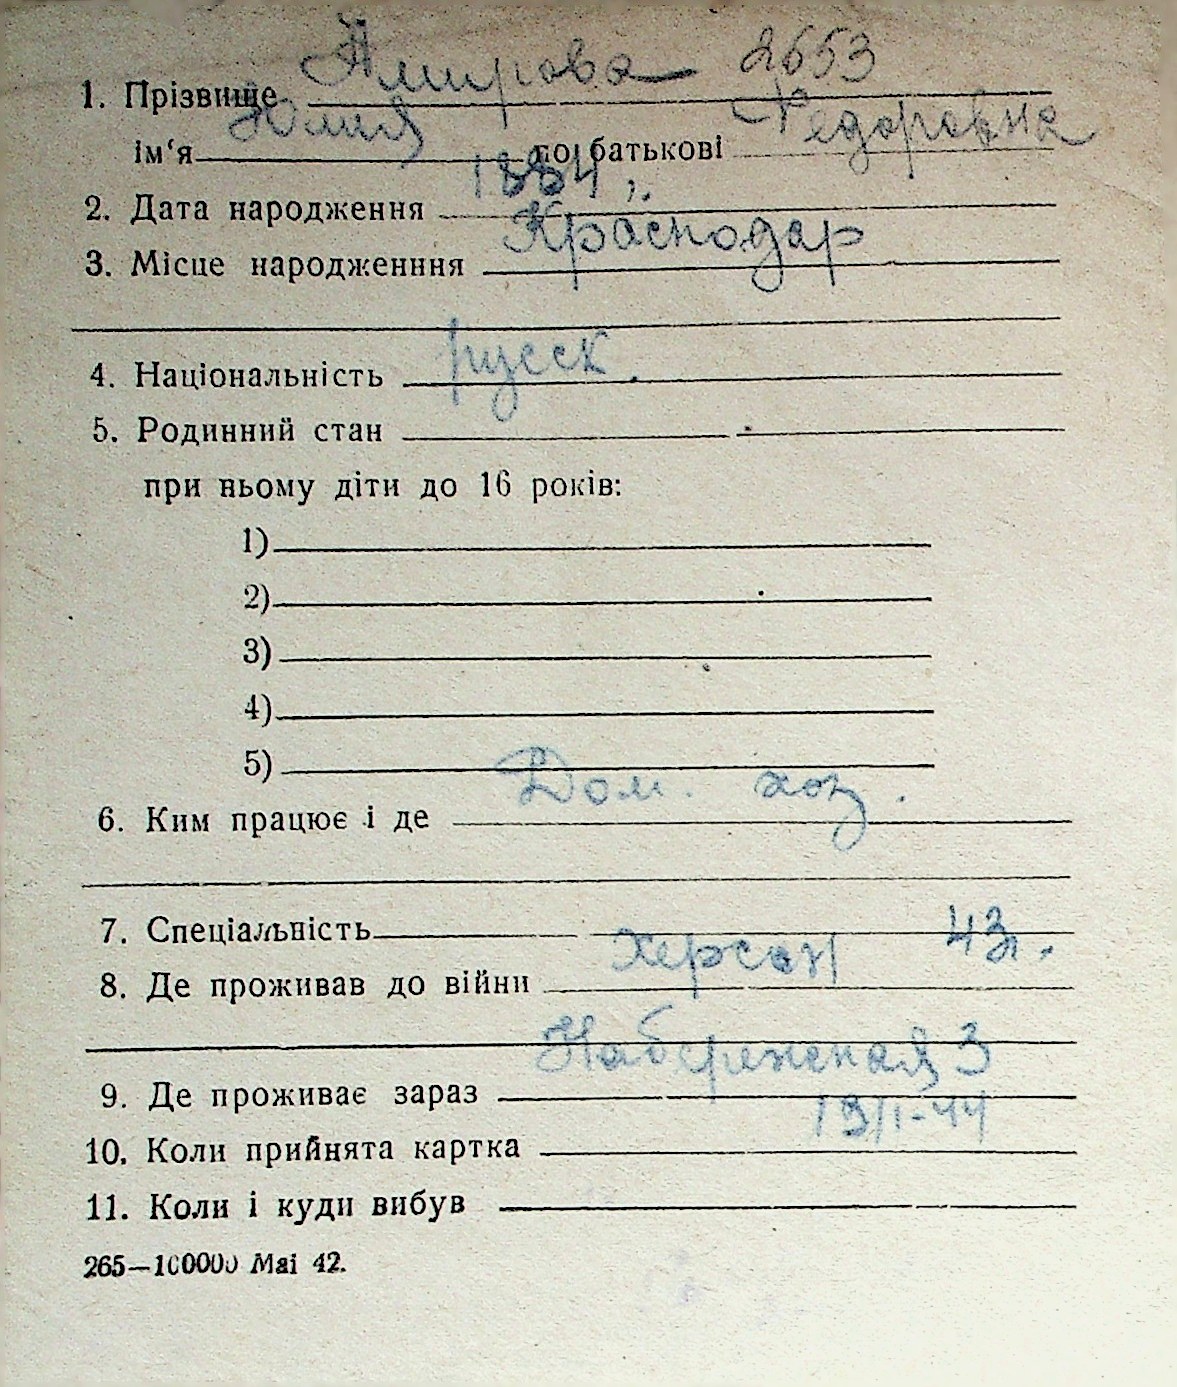 1. Прізвище Амирова 2653
ім‘я Юлия по батькові Федоровна
2. Дата народження 1884 г.
3. Місце народженння Краснодар
4. Національність русск.
5. Родинний стан
при ньому діти до 16 років:
1)
2)
3)
4)
5)
6. Ким працює і де Дом. хоз.
7. Спеціальність
8. Де проживав до війни Херсон 43г.
9. Де проживає зараз Набережная 3
10. Коли прийнята картка 19/I-44
11. Коли і куди вибув
265—100000 Mai 42.